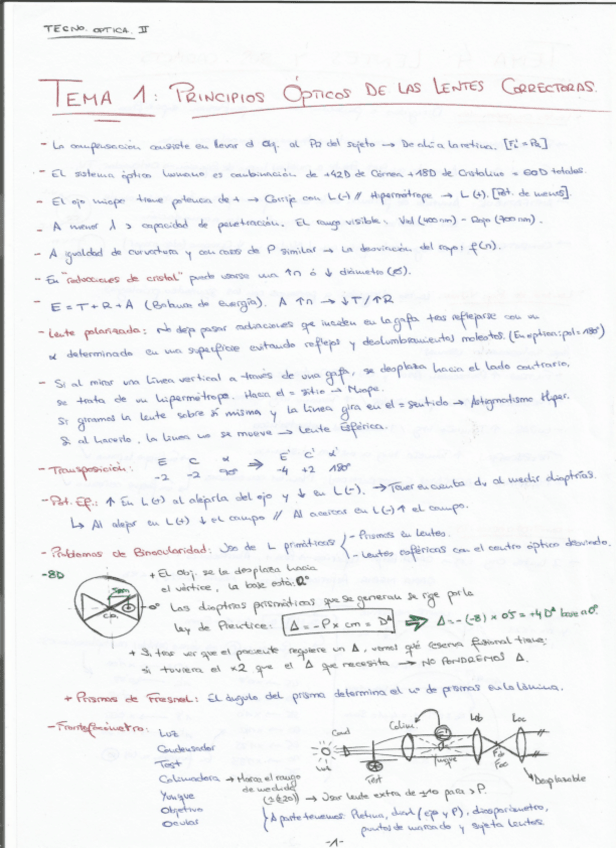 TECNO. OPTICA. II
TEMA 1: PRINCIPIOS ÓPTICOS DE LAS LENTES CORRECTORAS.
- La compensación consiste en llevar el obj. al PR del sujeto → De ahí a la retina. [F'i = PR]
- El sistema óptico humano es combinación de +42D de Córnea +18D de Cristalino = 60D totales.
- El ojo miope tiene potencia de + → Corrije con L(-) // Hipermétrope → L(+). [Pot. de menos].
- A menor λ > capacidad de penetración. El rango visible: Viol (400nm) - Rojo (700nm).
- A igualdad de curvatura y con casos de P similar → La desviación del rayo; f(n).
- En "reducciones de cristal" puede usarse una ↑n ó ↓ diámetro (es).
- E = T + R + A (Balance de Energía). A ↑n → ↓T/↑R
- Lente polarizada: No deja pasar radiaciones que inciden en la gafa tras reflejarse con un
α determinado en una superficie evitando reflejos y deslumbramientos molestos. (En optica: pol = 180º)
- Si al mirar una línea vertical a través de una gafa, se desplaza hacia el lado contrario,
se trata de un hipermétrope. Hacia el = sitio → Miope.
Si giramos la lente sobre sí misma y la línea gira en el = sentido → Astigmatismo Hiper.
Si al hacerlo, la línea no se mueve → Lente Esférica.
- Transposición: E C α ⇒ E' C' α'
-2 -2 90º -4 +2 180º
- Pot. Ef.: ↑ En L(+) al alejarla del ojo y ↓ en L(-). → Tener en cuenta dv al medir dioptrías.
↳ Al alejar en L(+) ↓ el campo // Al acercar en L(-) ↑ el campo.
- Problemas de Binocularidad: Uso de L prismáticas
- Prismas en lentes.
- Lentes esféricas con el centro óptico desviado.
-8D
5mm
C.O.
0º
+ El obj. se la desplaza hacia
el vértice, la base está: 0º
Las dioptrías prismáticas que se generan se rige por la
Ley de Prentice: Δ = -P x cm = D^Δ ⇒ Δ = -(-8) x 0'5 = +4D^Δ base a 0º.
+ Si, tras ver que el paciente requiere un Δ, vemos qué reserva fusional tiene;
si tuviera el x2 que el Δ que necesita → NO PONDREMOS Δ.
+ Prismas de Fresnel: El ángulo del prisma determina el nº de prismas en la lámina.
- Frontofocómetro:
Luz
Condensador
Test
Colimadora → Marca el rango
de medida
(±20) → Usar lente extra de -10 para > P.
Yunque
Objetivo
Ocular
A parte tenemos: Retina, dial (eje y P), diasporámetro,
puntos de marcado y sujeta lentes.
Luz
Cond
Test
Colim.
Yunque
Lob
Loc
Desplazable
-1-